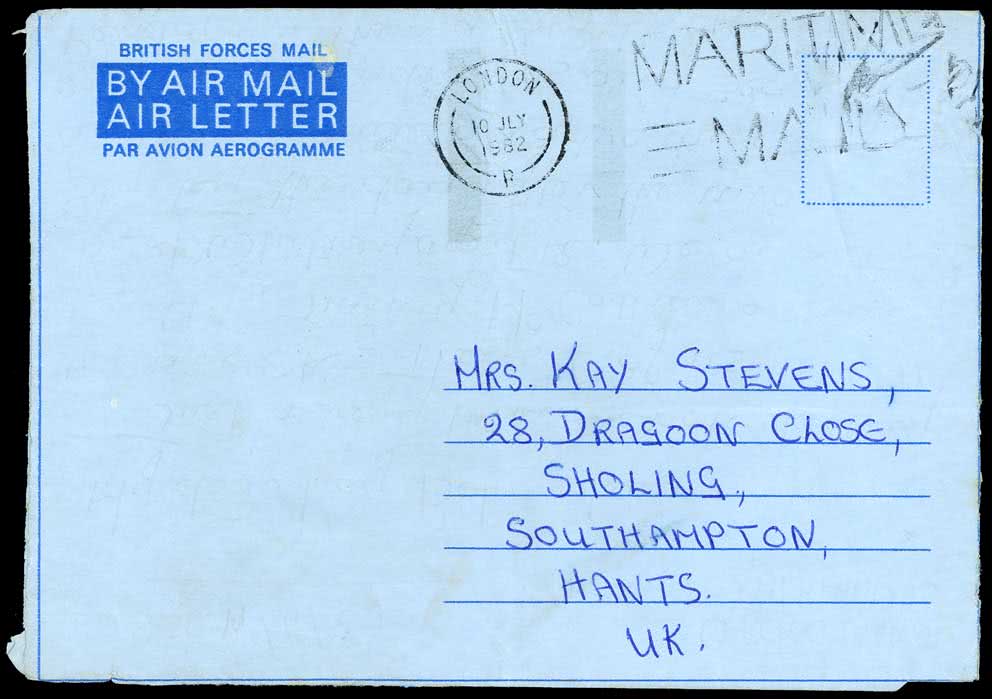 BRITISH FORCES MAIL
BY AIR MAIL
AIR LETTER
PAR AVION AEROGRAMME
LONDON
10 JLY
1982
P
MARITIME
= MAIL
MRS. KAY STEVENS,
28, DRAGOON CLOSE,
SHOLING,
SOUTHAMPTON,
HANTS.
UK.